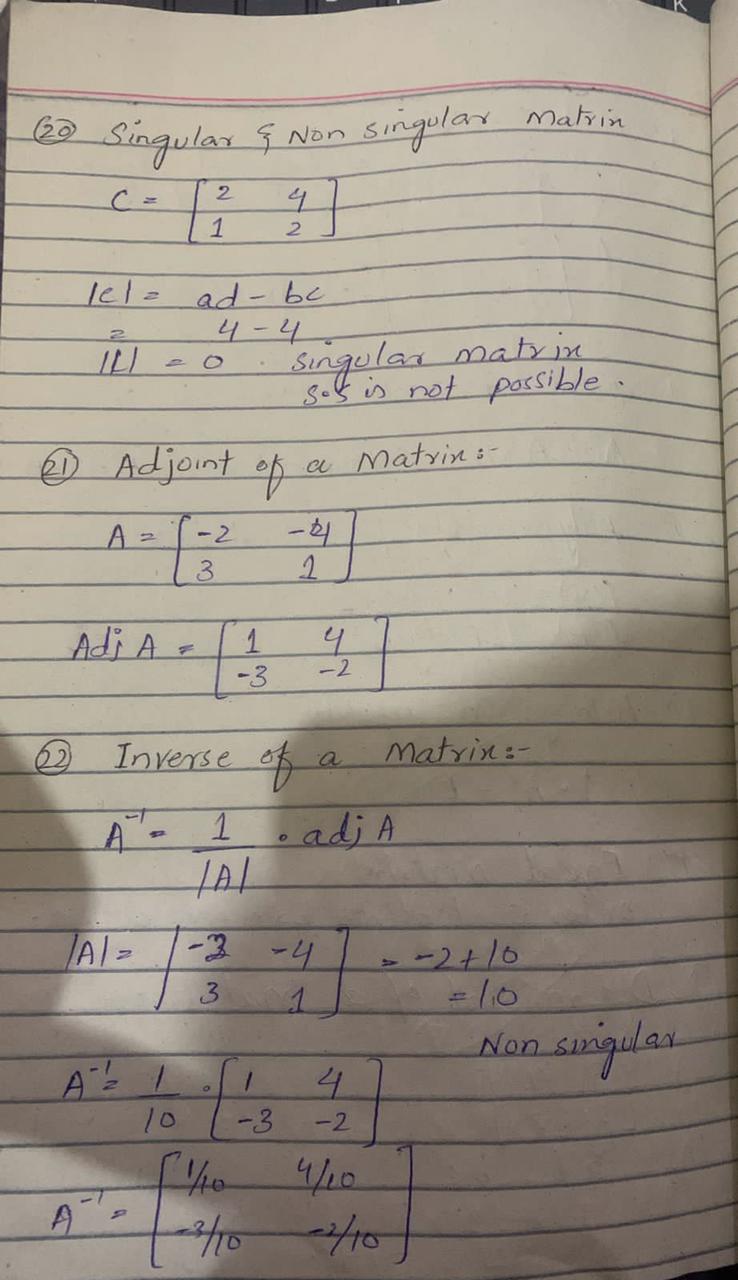 (20) Singular & Non Singular Matrix
C = [ 2 4
1 2 ]
|C| = ad - bc
= 4 - 4
|C| = 0 . Singular matrix
is not possible.
(21) Adjoint of a Matrix :-
A = [ -2 -4
3 1 ]
Adj A = [ 1 4
-3 -2 ]
(22) Inverse of a Matrix :-
A⁻¹ = 1 . adj A
|A|
|A| = | -2 -4 ] = -2 + 10
3 1 = 10
Non singular
A⁻¹ = 1 . [ 1 4
10 -3 -2 ]
A⁻¹ = [ 1/10 4/10
-3/10 -2/10 ]